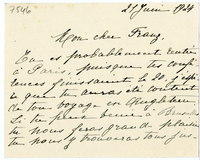 7546
21 Juin 1924
Mon cher Franz,
Tu es probablement rentré
à Paris, puisque tes confé-
rences finissaient le 20. J'espère
que tu auras été content
de ton voyage en Angleterre.
Si tu peux venir à
tu nous feras grand plaisir
tu nous y trouveras tous